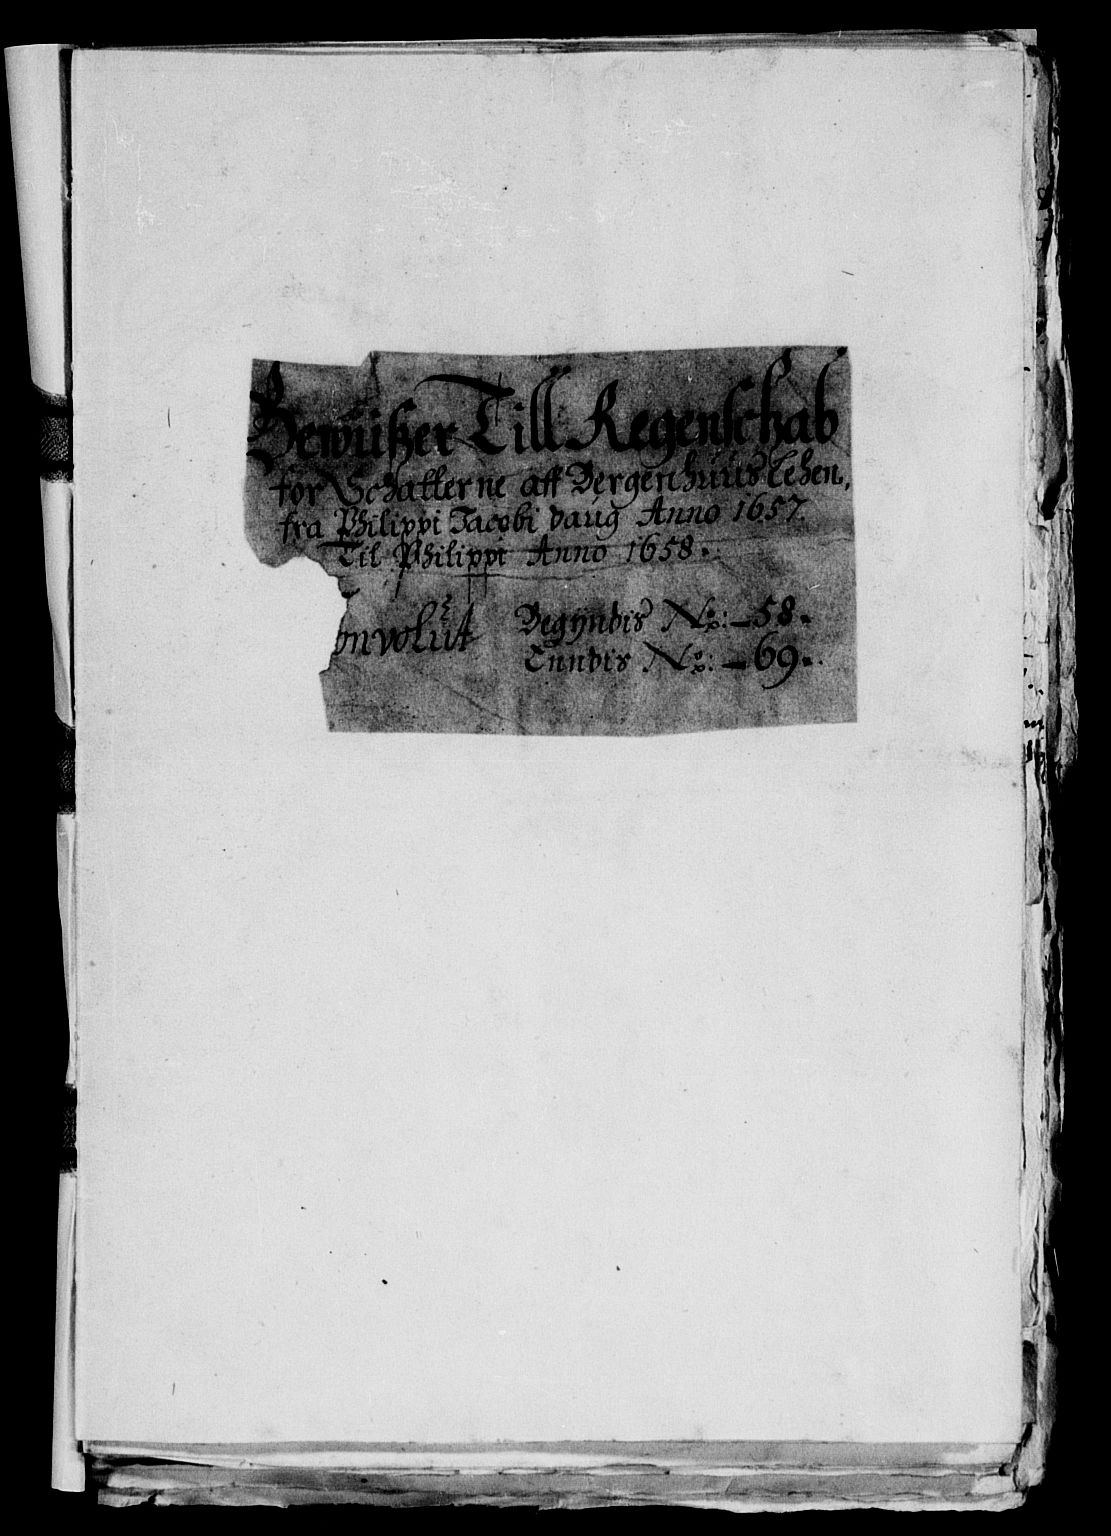 Bewüßer Till Regenschab
for Schatterne aff Bergenhuus Lehen,
fra Philippi Jacobi daug Anno 1657.
Til Philippi Anno 1658.
onvolüt Begÿndis No: 58.
Enndis No: 69.